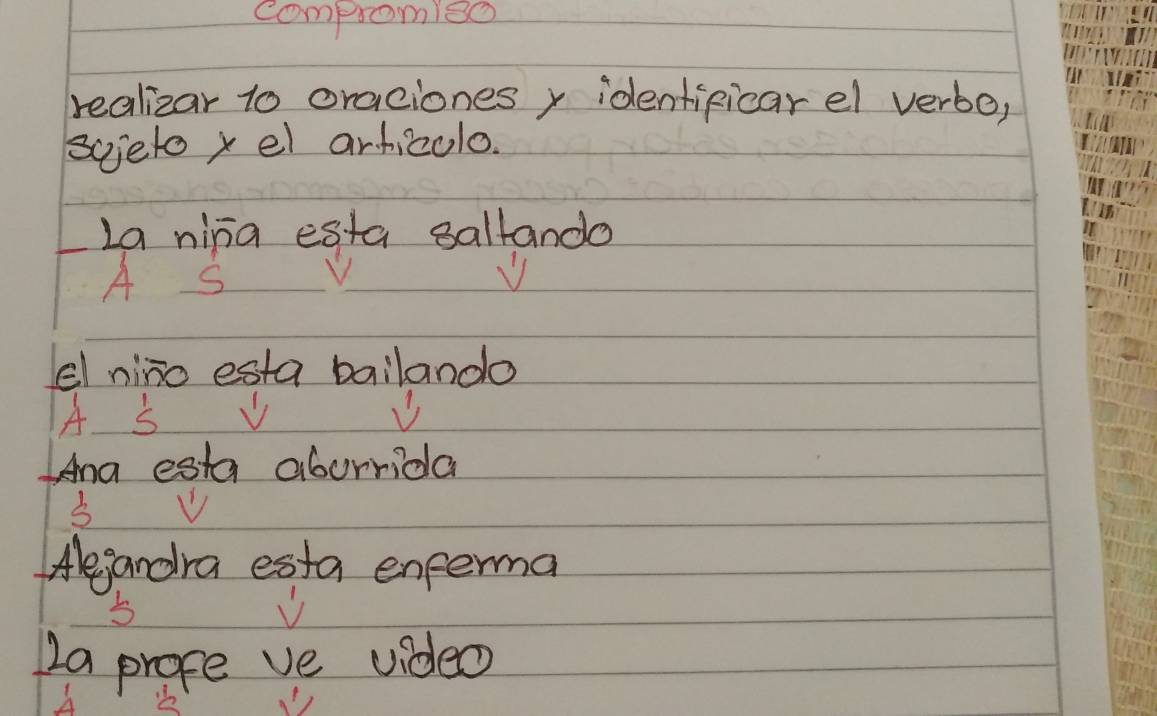 compromiso
realizar 10 oraciones y identificar el verbo,
sujeto y el articulo.
- La niña esta saltando
A S V V
el niño esta bailando
A S V V
- Ana esta aburrida
S V
- Alejandra esta enferma
S V
- La profe ve video
A S V